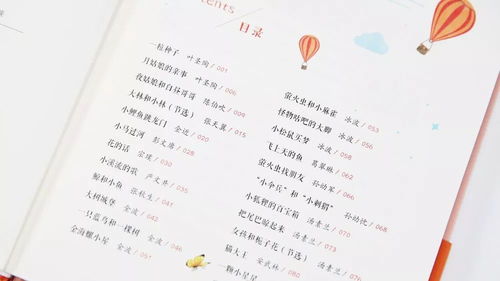 目录
一粒种子 叶圣陶/001
月姑娘的亲事 叶圣陶/006
夜姑娘和白昼哥哥 陈伯吹/009
大林和小林（节选） 张天翼/015
小鲤鱼跳龙门 金近/020
小马过河 彭文席/028
花的话 宗璞/030
小溪流的歌 严文井/035
鲸和小鱼 张秋生/041
大树城堡 金波/042
一只蓝鸟和一棵树 金波/046
金海螺小屋 金波/051
萤火虫和小麻雀 冰波/053
怪物咕吧的大脚 冰波/056
小松鼠买梦 冰波/058
飞上天的鱼 葛翠琳/062
萤火虫找朋友 孙幼军/066
“小伞兵”和“小刺猬” 孙幼忱/068
小狐狸的百宝箱 汤素兰/070
把尾巴晾起来 汤素兰/073
女孩和栀子花（节选） 汤素兰/076
猫大王 安武林/080
一颗小星星